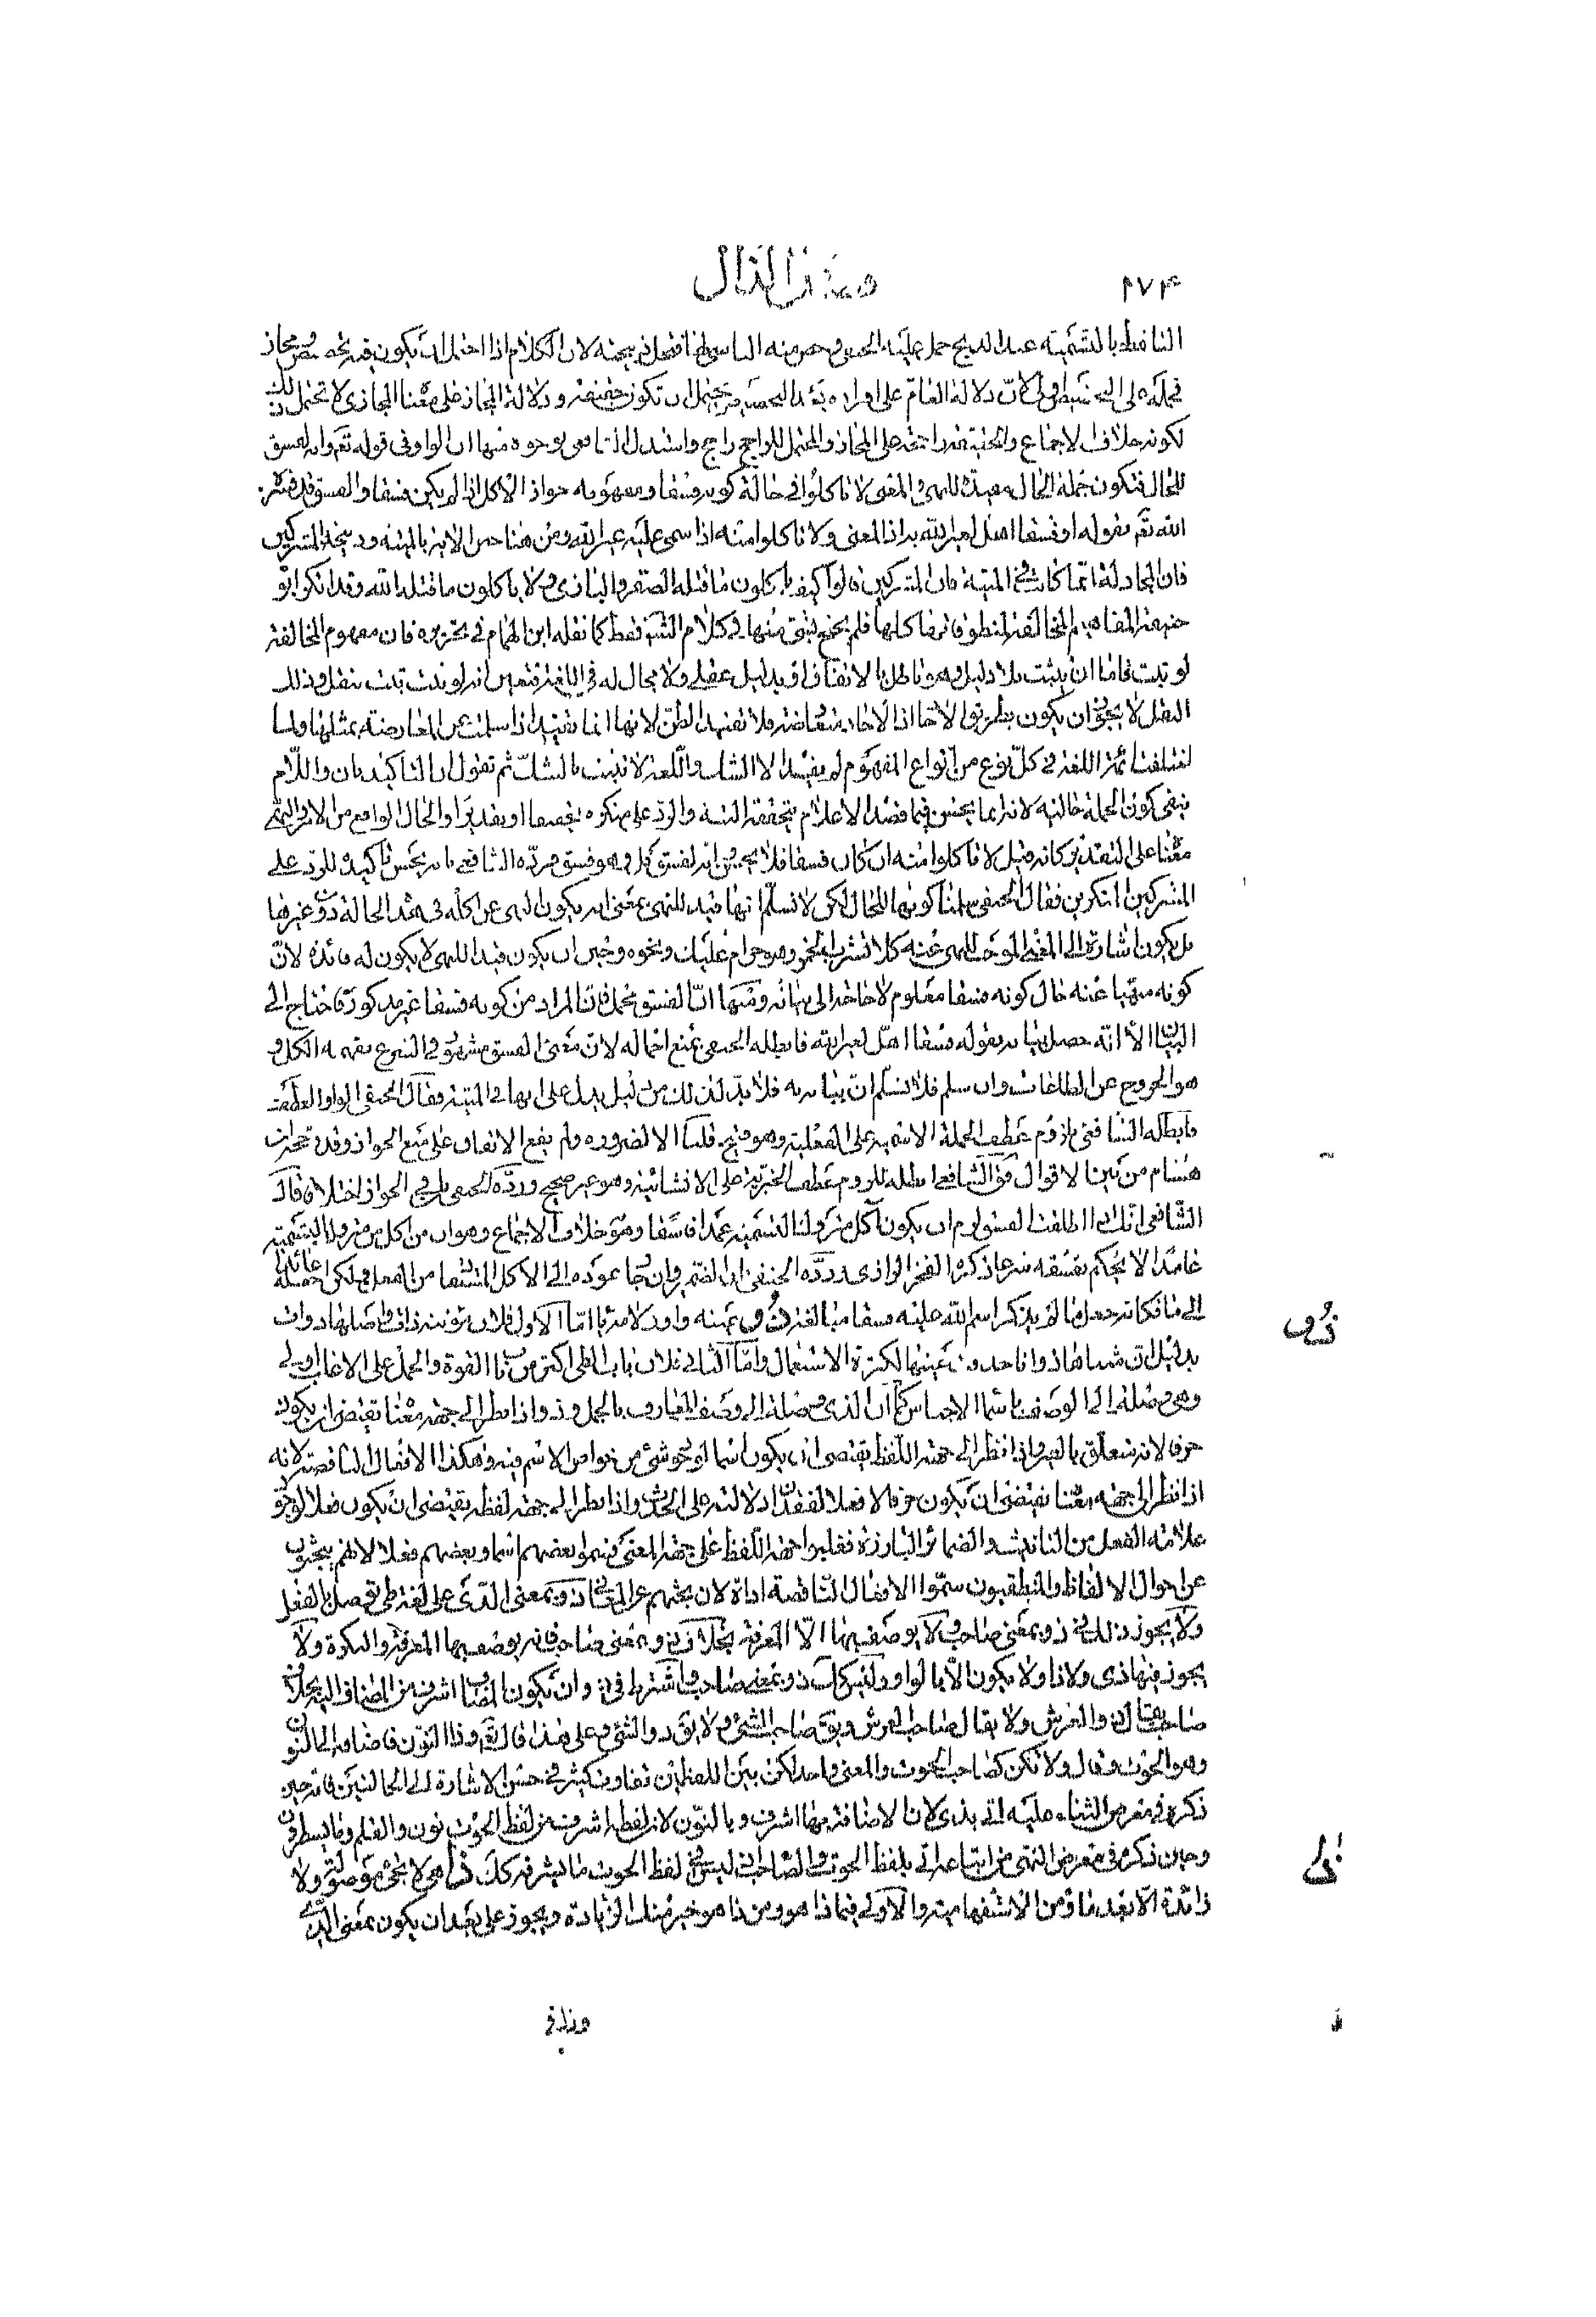 ١٧٤
فصل الذال
التلفظ بالتسمية عند الذبح حمل عليه الحنفي وخص منه الناسي فتحل ذبيحته لان الكلام اذا احتمل ان يكون فيه تخصيص ومجاز
فحمله على التخصيص اولى لان دلالة العام على افراده بعد التخصيص يحتمل ان تكون حقيقة ودلالة المجاز على معناه المجازي لا تحتمل ذلك
لكونه خلاف الاجماع والحقيقة راجحة على المجاز والمحتمل للراجح راجح واستدل الشافعي بوجوه منها ان الواو في قوله تع وانه لفسق
للحال فتكون جملة الحال مقيدة للنهي والمعنى لا تاكلوا في حالة كونه فسقا ومفهومه جواز الاكل اذا لم يكن فسقا والفسق قد فسره
الله تع بقوله او فسقا اهل لغير الله به اذ المعنى ولا تاكلوا منه اذا سمي عليه غير الله ومن هنا خص الاية بالميتة وذبيحة المشركين
فان المجادلة انما كانت في الميتة فان المشركين قالوا كيف ياكلون ما قتله الصقر والبازي ولا ياكلون ما قتله الله وقد انكر ابو
حنيفة المفاهيم المخالفة لمنطوقاتها كلها فلم يحتج بشئ منها في كلام الشرع فقط كما نقله ابن الهمام في تحريره فان مفهوم المخالفة
لو ثبت فاما ان يثبت بلا دليل وهو باطل بالاتفاق او بدليل عقلي ولا مجال له في اللغة فتعين انه لو ثبت ثبت بنقل وذلك
النقل لا يجوز ان يكون بطريق الاحاد اذ الاحاد متعارضة فلا تفيد الظن لانها انما تفيد اذا سلمت عن المعارضة بمثلها ولما
اختلفت ائمة اللغة في كل نوع من انواع المفهوم لم يفيد الا الشك واللغة لا تثبت بالشك ثم تقول ان التاكيد بان واللام
ينفي كون الجملة حالية لانه انما يحسن فيما قصد الاعلام بتحققه البتة والرد على منكره تحقيقا او تقديرا والحال الواقع من الامر والنهي
معناه على التقدير كانه قيل لا تاكلوا منه ان كان فسقا فلا يحسن انه لفسق بل وهو فسق فرده الشافعي بانه يحسن تاكيده للرد على
المشركين المنكرين فقال الحنفي سلمنا كونها للحال لكن لا نسلم انها قيد للنهي بمعنى انه يكون النهي عن اكله في هذه الحالة دون غيرها
بل يكون اشارة الى المعنى الموجب للنهي عنه كلا تشرب الخمر وهو حرام عليك ونحوه وحين ان يكون قيدا للنهي لا يكون له فائدة لان
كونه منهيا عنه حال كونه فسقا معلوم لا حاجة الى بيانه ومنها ان الفسق مجمل فان المراد من كونه فسقا غير مذكور فاحتاج الى
البيان الا انه حصل بيانه بقوله فسقا اهل لغير الله فابطله الحنفي بمنع اجماله لان معنى الفسق مشهور في الشرع يفهمه الكل و
هو الخروج عن الطاعات وان سلم فلا نسلم ان بيانه به فلا بد لذلك من دليل يدل على انها في الميتة فقال الحنفي الواو للعطف
فابطله الشافعي بلزوم عطف الجملة الاسمية على الفعلية وهو قبيح قلنا الا لضرورة ولم يقع الاتفاق على منع الجواز وقد رجح ابن
هشام من بين الاقوال قول الشافعي ابطله للزوم عطف الخبرية على الانشائية وهو غير صحيح ورده الحنفي بان في الجواز اختلاف قال
الشافعي انك ان اطلقت الفسق لزم ان يكون آكل متروك التسمية عمدا فاسقا وهو خلاف الاجماع وهو ان من اكل من متروك التسمية
عامدا لا يحكم بفسقه شرعا ذكره الفخر الرازي ورده الحنفي ان الضمير وان جاز عوده الى الاكل المستفاد من الفعل لكن جعله عائدا
الى ما فكانه جعل ما لم يذكر اسم الله عليه فسقا مبالغة ذو عينه واو ولامه يا اما الاول فلان مؤنثه ذات واصلها ذوات
بدليل ان مثناها ذواتا حذفت عينها لكثرة الاستعمال واما الثاني فلان باب الطي اكثر من باب القوة والحمل على الاغلب اولى
وهي وصلة الى الوصف باسماء الاجناس كما ان الذي وصلة الى وصف المعارف بالجمل وذو اذا نظر الى جهة معناه تقتضي ان يكون
حرفا لانه متعلق بالغير واذا نظر الى جهة اللفظ يقتضي ان يكون اسما لوجود شئ من خواص الاسم فيه وهكذا الافعال الناقصة لانه
اذا نظر الى جهة معناه يقتضي ان يكون حرفا لا فعلا لفقدان دلالته على الحدث واذا نظر الى جهة لفظه يقتضي ان يكون فعلا لوجود
علامة الفعل من التانيث والضمائر البارزة فغلبوا جهة اللفظ على جهة المعنى فسموا بعضهم اسما وبعضهم فعلا لانهم يبحثون
عن احوال الالفاظ والمنطقيون سموا الافعال الناقصة اداة لان بحثهم عن المعاني ذو بمعنى الذي على لغة طي توصل بالفعل
ولا يجوز ذلك في ذو بمعنى صاحب ولا يوصف بها الا المعرفة بخلاف ذو بمعنى صاحب فانه يوصف بها المعرفة والنكرة ولا
يجوز فيها ذي ولا ذا ولا يكون الا بالواو وليس كك ذو بمعنى صاحب واشترط في ذو ان يكون المضاف اشرف من المضاف اليه بخلاف
صاحب يقال ذو العرش ولا يقال صاحب العرش ويق صاحب الشئ ولا يق ذو الشئ وعلى هذا قال تع وذا النون فاضافه الى النون
وهو الحوت وقال ولا تكن كصاحب الحوت والمعنى واحد لكن بين اللفظين تفاوت كثير في حسن الاشارة الى الحالتين فانه حين
ذكره في معرض الثناء عليه اتى بذي لان الاضافة بها اشرف وبالنون لان لفظه اشرف من لفظ الحوت نون والقلم وما يسطرون
وحين ذكره في معرض النهي عن اتباعه اتى بلفظ الحوت والصاحب اذ ليس في لفظ الحوت ما يشرفه كك ذا هي لا تجئ موصولة ولا
زائدة الا بعد ما ومن الاستفهاميتين والاولى فيماذا هو ومن ذا هو خير منك الزيادة ويجوز على بعد ان يكون بمعنى الذي
ذو
ذا
وذا في